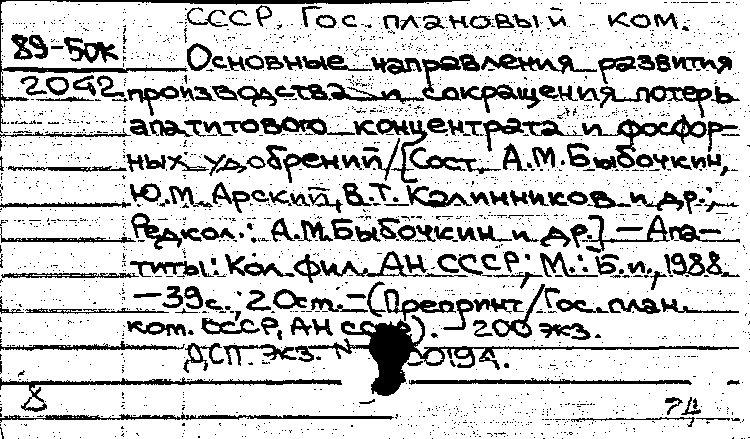 СССР. Гос. плановый ком.
89-50к
2042
Основные направления развития
производства и сокращения потерь
апатитового концентрата и фосфор-
ных удобрений/[Сост. А.М.Быбочкин,
Ю.М.Арский, В.Т.Калинников и др.;
Редкол.: А.М.Быбочкин и др.] — Апа-
титы: Кол. фил. АН СССР; М.: Б.и., 1988.
— 39 с.; 20 см. — (Препринт/Гос. план.
ком. СССР, АН СССР). — 200 экз.
ДСП. Экз. N 00194.
8